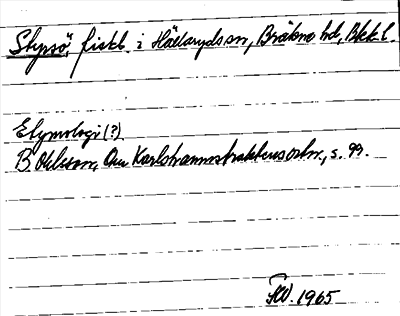 Styrsö, fiskl. i Hällaryds sn, Bräkne hd, Blek. l.
Etymologi (?)
B. Ohlsson, Om Karlshamnstraktens ortn., s. 99.
1965